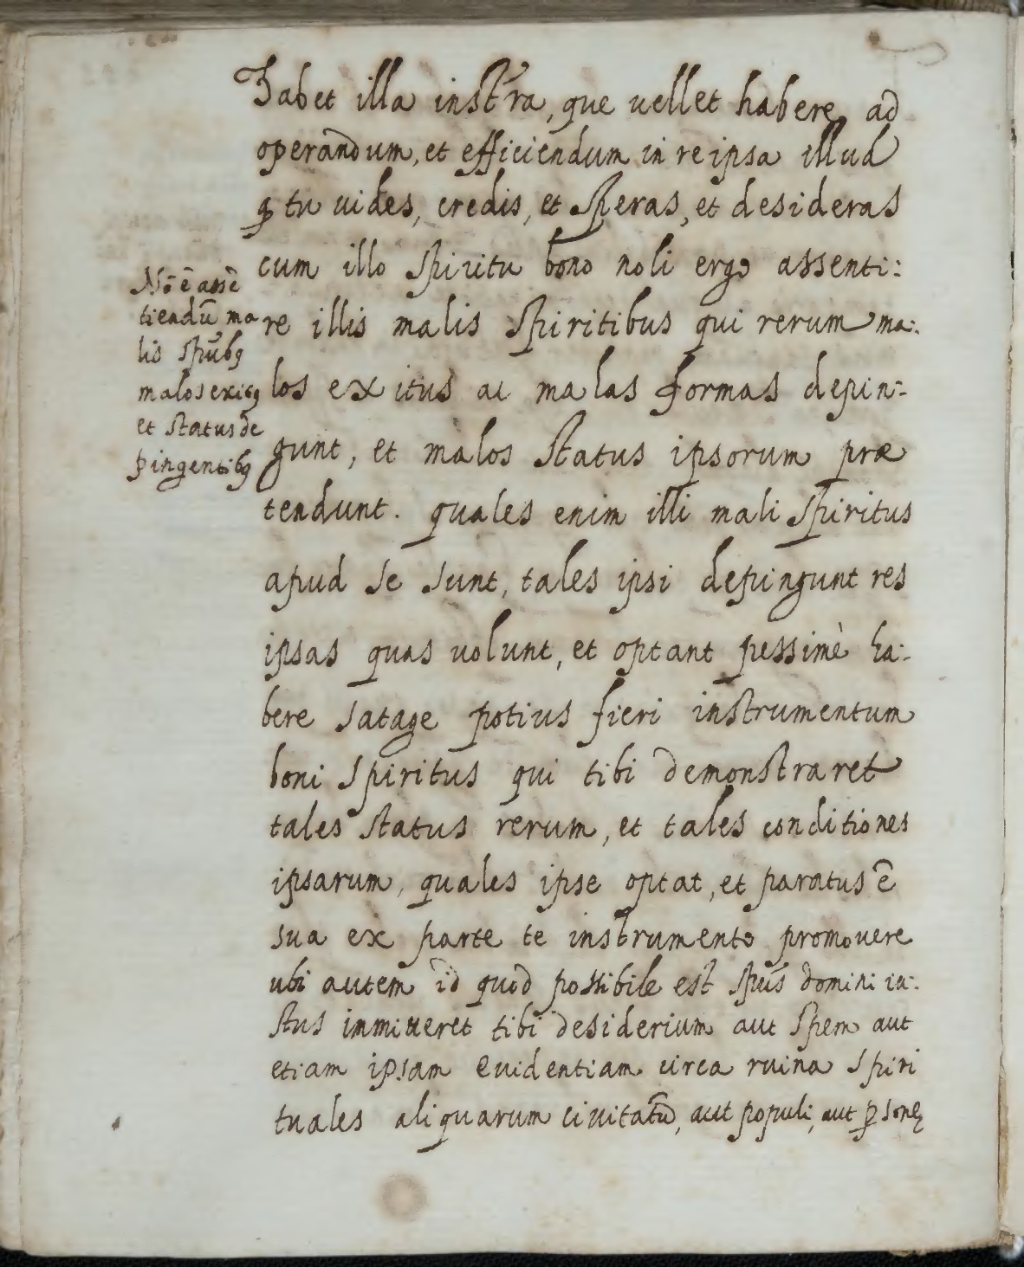 Habet illa instr̃a, que uellet habere ad
operandum, et efficiendum in re ipsa illud
q̃ tu uides, credis, et speras, et desideras
cum illo spiritu bono noli ergo assenti:
re illis malis spiritibus qui rerum ma:
los exitus ac malas formas depin:
gunt, et malos status ipsorum præ
tendunt. quales enim illi mali spiritus
apud se sunt, tales ipsi depingunt res
ipsas quas uolunt, et optant pessimè ha:
bere satage potius fieri instrumentum
boni spiritus qui tibi demonstraret
tales status rerum, et tales conditiones
ipsarum, quales ipse optat, et paratus ẽ
sua ex parte te instrumento promouere
ubi autem id quod possibile est spũs domini iu:
stus immitteret tibi desiderium aut spem aut
etiam ipsam euidentiam circa ruina spiri
tuales aliquarum ciuitatũ, aut populi, aut ꝑsonę
Nõ ẽ assẽ
tiendũ ma
lis spũbꝫ
malos exitꝫ
et status de
pingentibꝫ